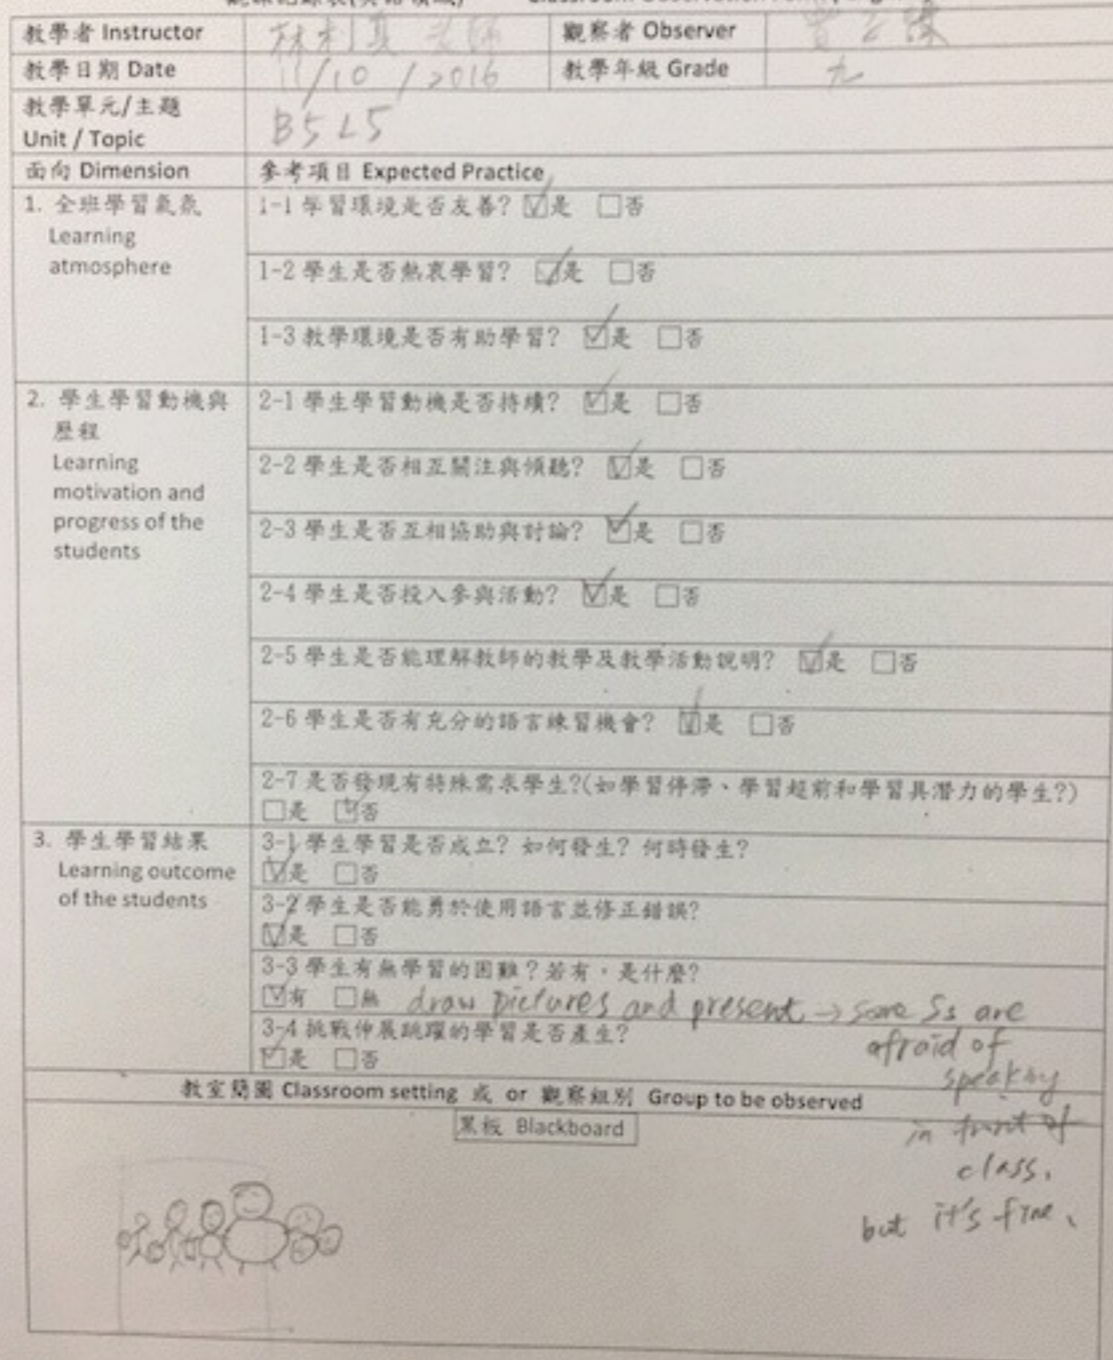 教學者 Instructor 林利真 老師 觀察者 Observer
教學日期 Date 11/10/2016 教學年級 Grade 九
教學單元/主題
Unit / Topic B5L5
面向 Dimension 參考項目 Expected Practice
1. 全班學習氣氛
Learning
atmosphere
1-1 學習環境是否友善? ☑是 □否
1-2 學生是否熱衷學習? ☑是 □否
1-3 教學環境是否有助學習? ☑是 □否
2. 學生學習動機與
歷程
Learning
motivation and
progress of the
students
2-1 學生學習動機是否持續? ☑是 □否
2-2 學生是否相互關注與傾聽? ☑是 □否
2-3 學生是否互相協助與討論? ☑是 □否
2-4 學生是否投入參與活動? ☑是 □否
2-5 學生是否能理解教師的教學及教學活動說明? ☑是 □否
2-6 學生是否有充分的語言練習機會? ☑是 □否
2-7 是否發現有特殊需求學生?(如學習停滯、學習超前和學習具潛力的學生?)
□是 ☑否
3. 學生學習結果
Learning outcome
of the students
3-1 學生學習是否成立? 如何發生? 何時發生?
☑是 □否
3-2 學生是否能勇於使用語言並修正錯誤?
☑是 □否
3-3 學生有無學習的困難?若有,是什麼?
☑有 □無 draw pictures and present → some Ss are
afraid of
speaking
in front of
class,
but it's fine.
3-4 挑戰伸展跳躍的學習是否產生?
☑是 □否
教室簡圖 Classroom setting 或 or 觀察組別 Group to be observed
黑板 Blackboard